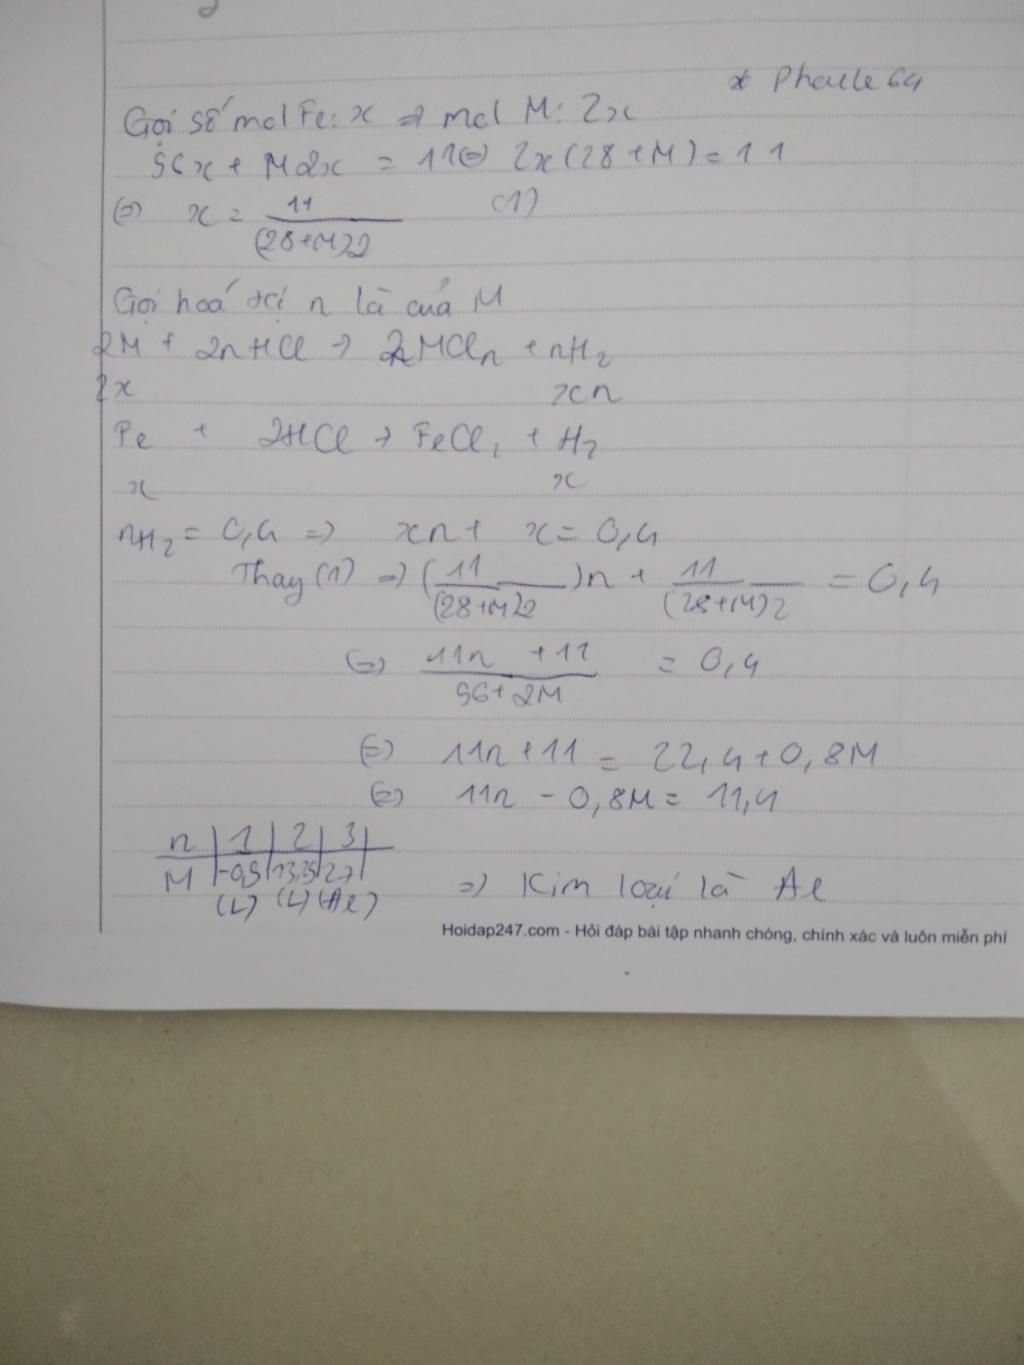 * Pholle 64
Gọi số mol Fe: x => mol M: 2x
56x + M2x = 11 (=) 2x(28+M) = 11
(=) x = 11/(28+M)2 (1)
Gọi hoá trị n là của M
2M + 2nHCl → 2MCln + nH2
2x xn
Fe + 2HCl → FeCl2 + H2
x x
nH2 = 0,4 => xn + x = 0,4
Thay (1) => (11/(28+M)2)n + 11/(28+M)2 = 0,4
(=) 11n + 11/56+2M = 0,4
(=) 11n + 11 = 22,4 + 0,8M
(=) 11n - 0,8M = 11,4
n | 1 | 2 | 3 |
M | -0,5 | 13,25 | 27 |
(L) (L) (Al)
=> Kim loại là Al
Hoidap247.com - Hỏi đáp bài tập nhanh chóng, chính xác và luôn miễn phí